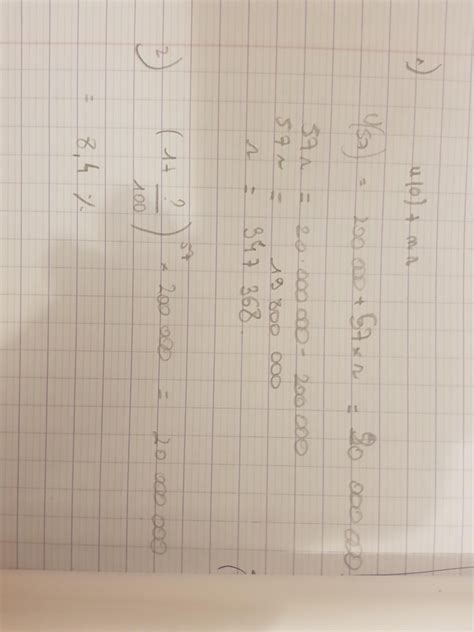 1) u(0) + n r
u(57) = 200 000 + 57 × r = 20 000 00
57 r = 20.000 000 - 200 000
57 r = 19 800 000
r = 347 368.
2) (1 + ?/100)^57 × 200 000 = 20 000 000
= 8,4 %.